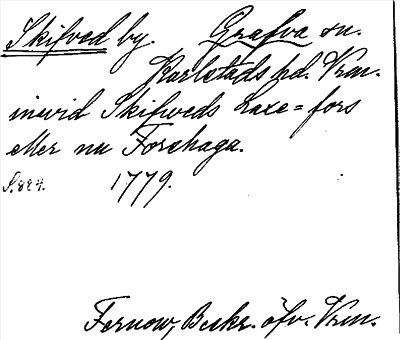 Skifved by. Grafva sn.
Karlstads hd. Vrm.
invid Skifweds Laxe=fors
eller nu Forshaga.
S. 824. 1779.
Fernow, Beskr. öfv. Vrm.